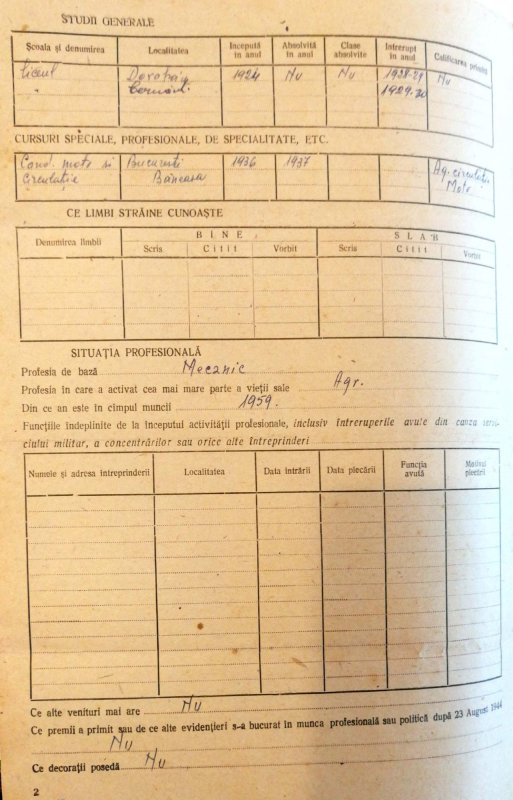 STUDII GENERALE
Școala și denumirea Localitatea Începută în anul Absolvită în anul Clase absolvite Întrerupt în anul Calificarea primită
Liceul Dorohoi 1924 Nu Nu 1928-29 Nu
" Cernăuți 1929.30
CURSURI SPECIALE, PROFESIONALE, DE SPECIALITATE, ETC.
Cond. moto si București 1936 1937 Ag. circulatie
Circulație Băneasa Moto
CE LIMBI STRĂINE CUNOAȘTE
Denumirea limbii BINE SLAB
Scris Citit Vorbit Scris Citit Vorbit
SITUAȚIA PROFESIONALĂ
Profesia de bază Mecanic
Profesia în care a activat cea mai mare parte a vieții sale Agr.
Din ce an este în cîmpul muncii 1959.
Funcțiile îndeplinite de la începutul activității profesionale, inclusiv întreruperile avute din cauza servi-
ciului militar, a concentrărilor sau orice alte întreprinderi
Numele și adresa întreprinderii Localitatea Data intrării Data plecării Funcția avută Motivul plecării
Ce alte venituri mai are Nu
Ce premii a primit sau de ce alte evidențieri s-a bucurat în munca profesională sau politică după 23 August 1944
Nu
Ce decorații posedă Nu
2